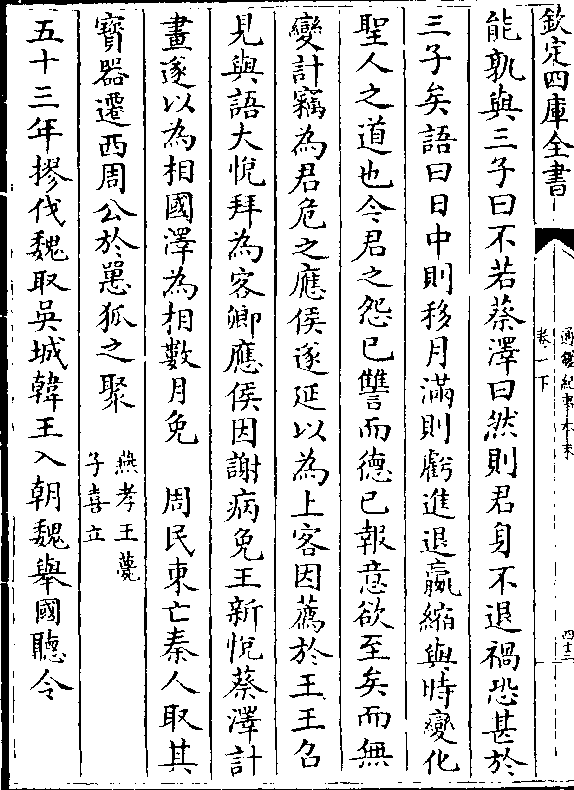 欽定四庫全書
通鑑紀事本末
卷一下
四十二
能孰與三子曰不若蔡澤曰然則君身不退禍恐甚於
三子矣語曰日中則移月滿則虧進退嬴縮與時變化
聖人之道也今君之怨已讐而德已報意欲至矣而無
變計竊為君危之應侯遂延以為上客因薦於王王召
見與語大悅拜為客卿應侯因謝病免王新悅蔡澤計
畫遂以為相國澤為相數月免 周民東亡秦人取其
寶器遷西周公於𢠸狐之聚 燕孝王薨
子喜立
五十三年摎伐魏取吳城韓王入朝魏舉國聽令